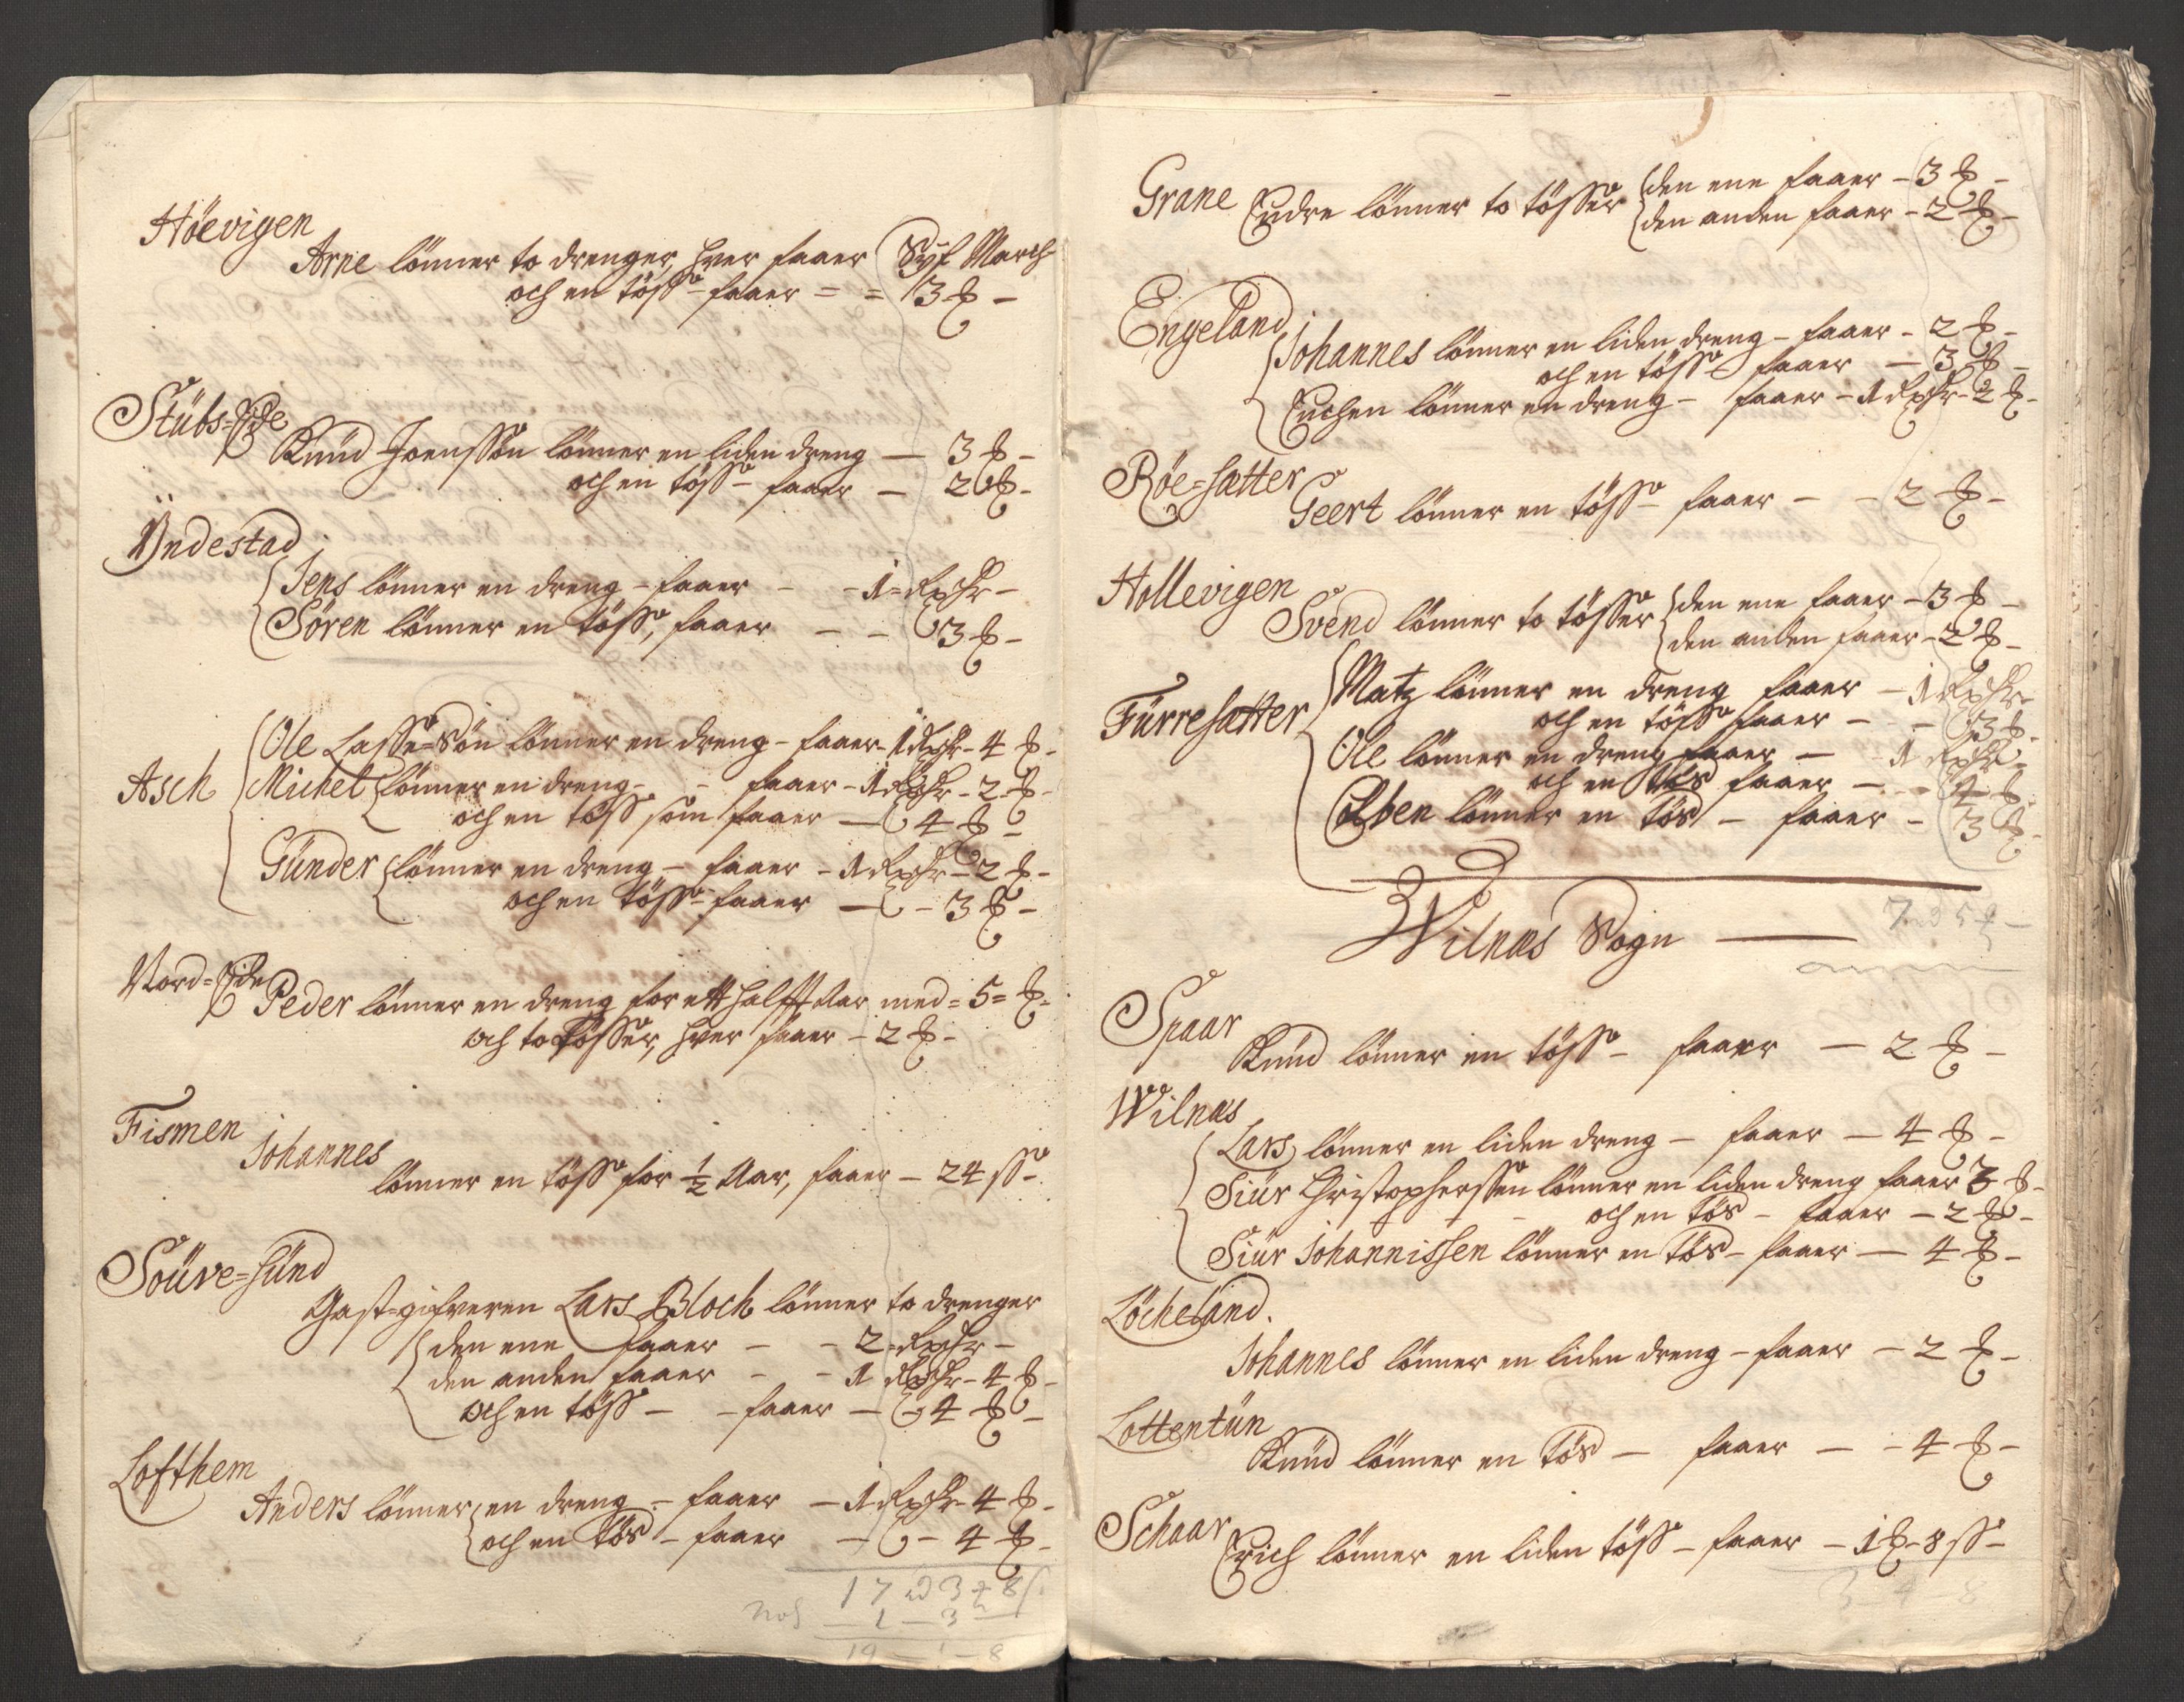 Höevigen
Arne lönner to drenger, hver faaer Syf March
och en töss faaer = = 3 ₰ -
Stübs=Eide
Knüd Joenssön lönner en liden dreng — 3 ₰ -
och en töss - faaer — 2 ₰ -
Yndestad
Jens lönner en dreng - faaer - - 1 = Rixdr -
Sören lönner en töss, faaer - - 3 ₰ -
Asch
Ole Lasse=Sön lönner en dreng - faaer - 1 Rixdr - 4 ₰ -
Michel lönner en dreng - - faaer - 1 Rixdr - 2 ₰ -
och en töss som faaer — 4 ₰ -
Günder lönner en dreng - faaer - 1 Rixdr - 2 ₰ -
och en töss - faaer — - 3 ₰ -
Nord=Eide Peder lönner en dreng for ett halfft Aar med = 5 = ₰ -
och to tösser, hver faaer - 2 ₰ -
Fismen
Johannes
lönner en töss for ½ Aar, faaer - 24 ss -
Soüve=sünd
Gast=gifveren Lars Bloch lönner to drenger
den ene faaer - - 2 = Rixdr -
den anden faaer - - 1 Rixdr - 4 ₰ -
och en töss - - faaer — 4 ₰ -
Lofthem
Anders lönner en dreng - faaer - 1 Rixdr - 4 ₰ -
och en tös - faaer — - 4 ₰ -
17 3 8
1 — 3
19 — 1 — 8
Grane Endre lönner to tösser den ene faaer - 3 ₰ -
den anden faaer - 2 ₰ -
Engeland
Johannes lönner en liden dreng - faaer - 2 ₰ -
och en töss faaer — 3 ₰ -
lönner en dreng - faaer - 1 Rixdr - 2 ₰ -
Röe=satter
Geert lönner en töss - faaer - - 2 ₰ -
Hollevigen
Svend lönner to tösser den ene faaer - 3 ₰ -
den anden faaer - 2 ₰ -
Fürresatter
Matz lönner en dreng faaer - 1 Rixdr -
och en töss faaer - - 3 ₰ -
Ole lönner en dreng faaer — 1 Rixdr -
och en tös faaer - - 4 ₰ -
Elben lönner en tös - faaer - 3 ₰ -
Wilnæs Sogn —
7 3 5
Spaar
Knüd lönner en töss - faaer — 2 ₰ -
Wilnæs
Lars lönner en liden dreng - faaer - 4 ₰ -
Siür Christopherssen lönner en liden dreng faaer 3 ₰ -
och en tös - faaer - 2 ₰ -
Siür Johannissen lönner en tös - faaer — 4 ₰ -
Löcheland.
Johannes lönner en liden dreng - faaer - 2 ₰ -
Lottentün
Knüd lönner en tös — faaer - - 4 ₰ -
Schaar
Erich lönner en liden töss - faaer - 1 ₰ - 8 ss -
3 - 4 - 8